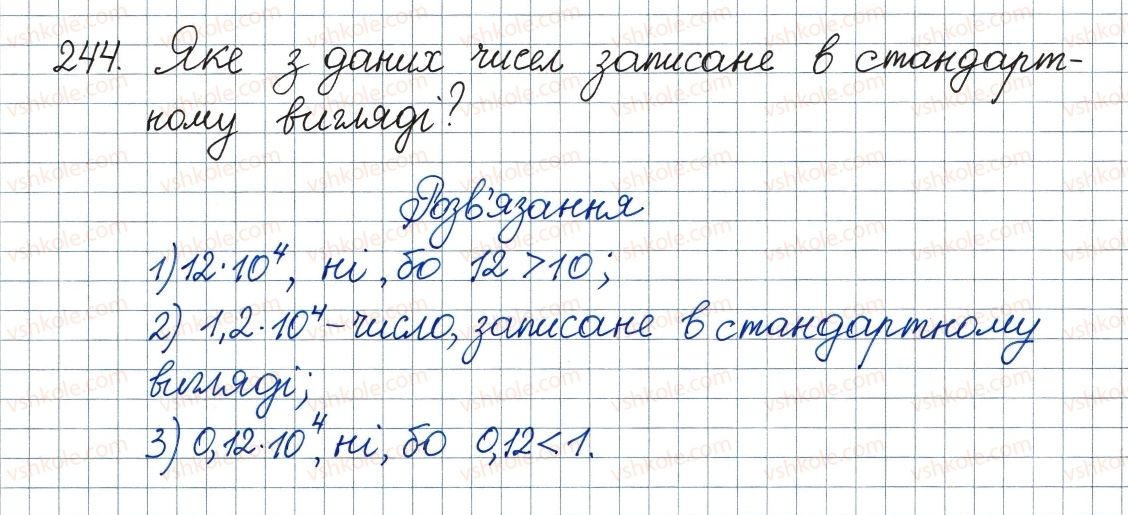 244. Яке з даних чисел записане в стандарт-
ному вигляді?
Розв'язання
1) 12·10⁴, ні, бо 12 > 10;
2) 1,2·10⁴ – число, записане в стандартному
вигляді;
3) 0,12·10⁴, ні, бо 0,12 < 1.